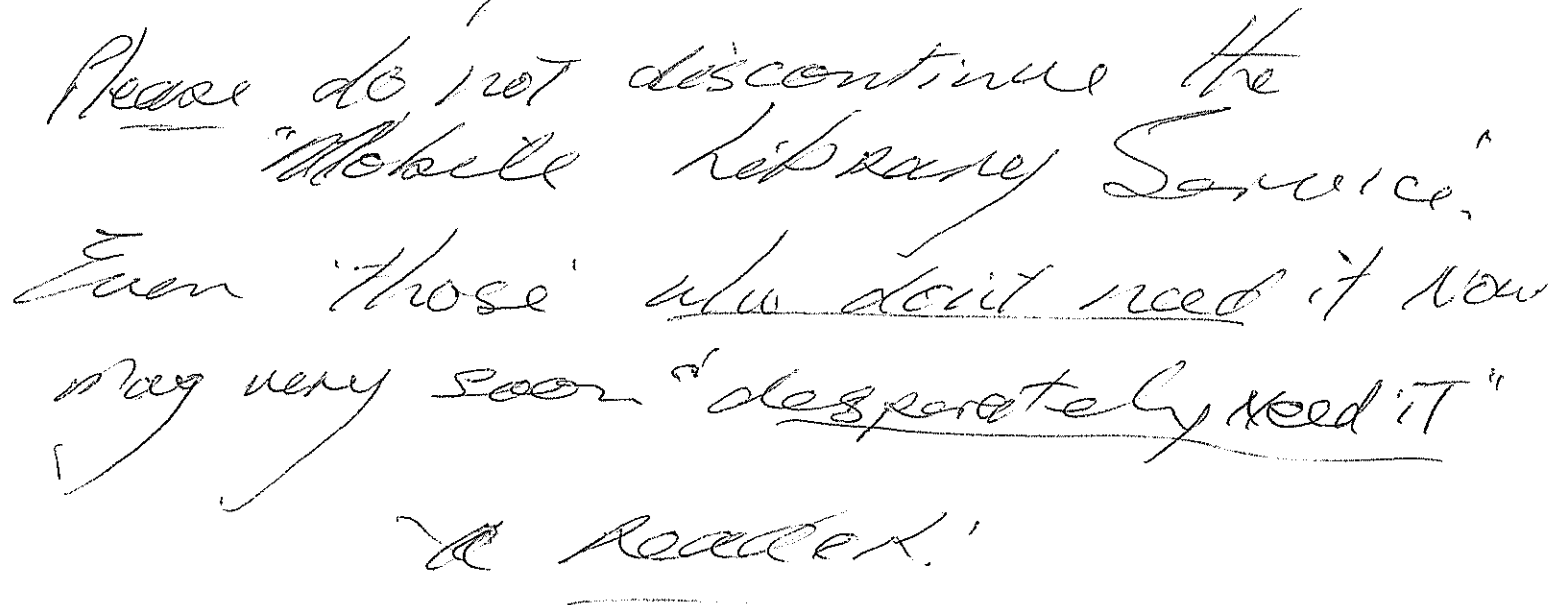 Please do not discontinue the
"Mobile Library Service."
Even 'those' who don't need it Now
may very soon "desperately need it"
'A Reader.'